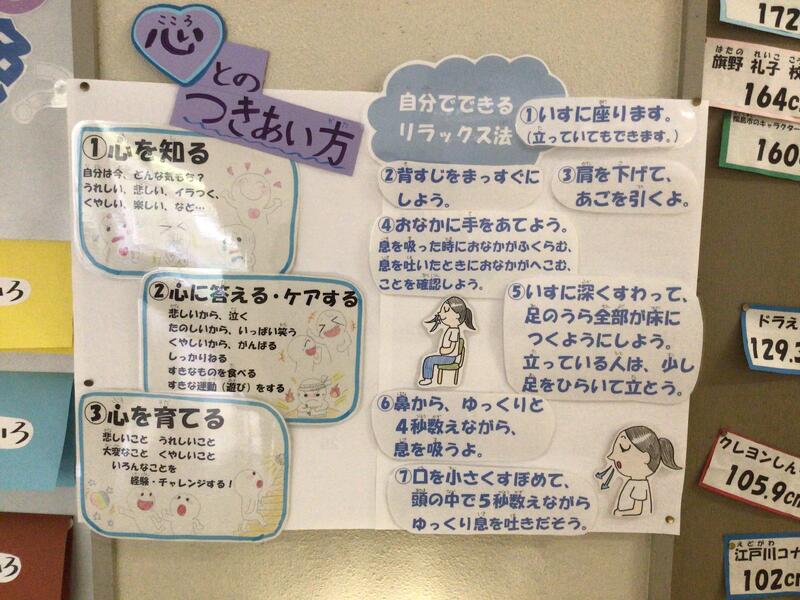 こころ
心
との
つきあい方
①心を知る
自分は今、どんな気もち?
うれしい、悲しい、イラつく、
くやしい、楽しい、など…
②心に答える・ケアする
悲しいから、泣く
たのしいから、いっぱい笑う
くやしいから、がんばる
しっかりねる
すきなものを食べる
すきな運動(遊び)をする
③心を育てる
悲しいこと うれしいこと
大変なこと くやしいこと
いろんなことを
経験・チャレンジする!
自分でできる
リラックス法
①いすに座ります。
(立っていてもできます。)
②背すじをまっすぐに
しよう。
③肩を下げて、
あごを引くよ。
④おなかに手をあてよう。
息を吸った時におなかがふくらむ、
息を吐いたときにおなかがへこむ、
ことを確認しよう。
⑤いすに深くすわって、
足のうら全部が床に
つくようにしよう。
立っている人は、少し
足をひらいて立とう。
⑥鼻から、ゆっくりと
4秒数えながら、
息を吸うよ。
⑦口を小さくすぼめて、
頭の中で5秒数えながら
ゆっくり息を吐きだそう。
いろ
いろ
いろ
172
はたの れいこ こう
旗野 礼子 校
164c
市のキャラクター
160
ドラえ
129.3
クレヨンしん
105.9cm
えどがわ
江戸川コナ
102cm